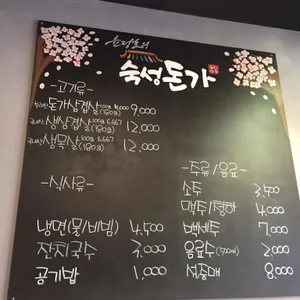 숙성돈가
-고기류-
돈가삼겹살(180g) 9,000
생삼겹살(180g) 100g 6,667 12,000
생목살(180g) 100g 6,667 12,000
-식사류-
냉면(물/비빔) 4,500
잔치국수 3,000
공기밥 1,000
-주류/음료-
소주 3,500
맥주/청하 4,000
백세주 7,000
음료수(500ml) 2,000
설중매 8,000